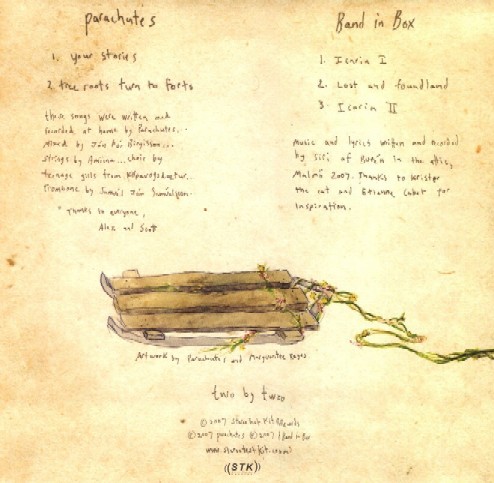 parachutes
1. your stories
2. tree roots turn to forts
these songs were written and
recorded at home by Parachutes...
mixed by Jón Þór Birgisson...
strings by Amiina... choir by
teenage girls from
trombone by Samúel Jón Samúelsson.
Thanks to everyone,
Alex and Scott
Band in Box
1. Icaria I
2. Lost and foundland
3. Icaria II
Music and lyrics written and recorded
by Siri of in the attic,
Malmö 2007. Thanks to Krister
the cat and Etienne Cabet for
inspiration.
Artwork by Parachutes and Marguerite Keyes
two by two
© 2007
© 2007 parachutes © 2007 Band in Box
((STK))